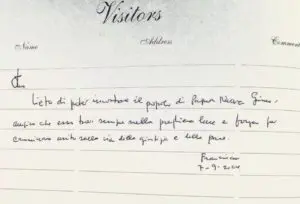 Visitors
Name Address Comment
Lieto di poter incontrare il popolo di Papua Nuova Gui-
auspico che esso trovi sempre nella preghiera luce e forza per
camminare unito sulla via della giustizia e della pace.
Franciscus
7-9-2024